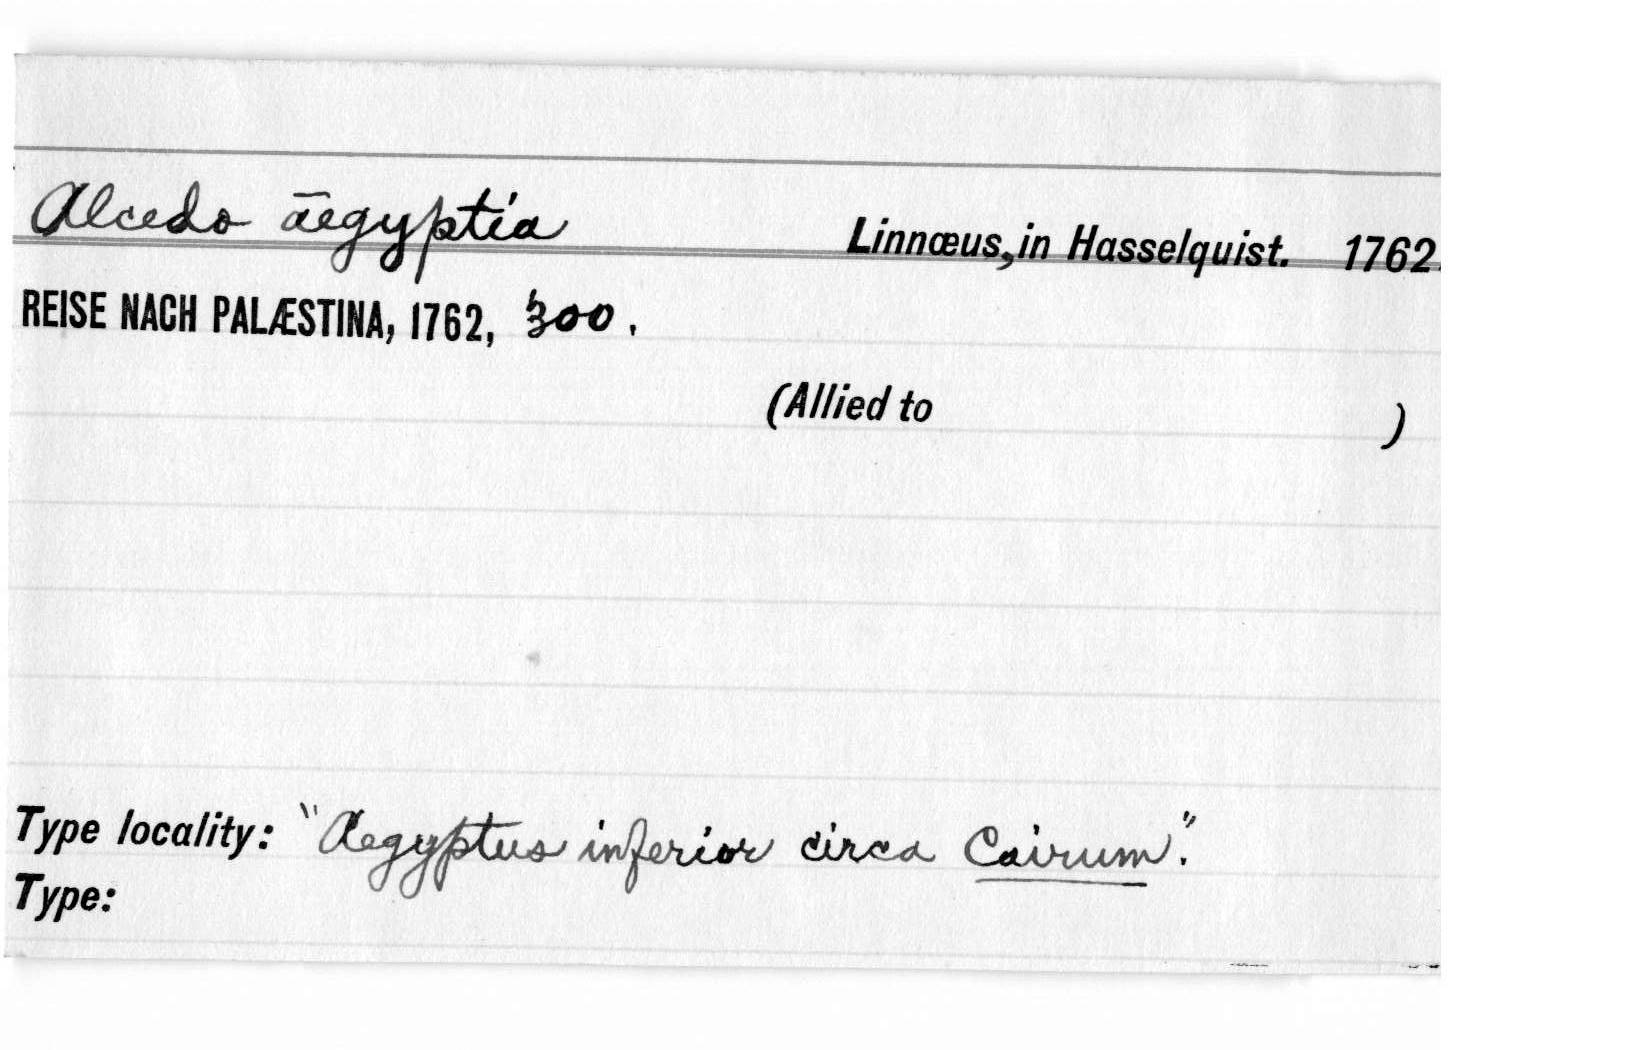 Alcedo aegyptia Linnæus, in Hasselquist. 1762.
REISE NACH PALÆSTINA, 1762, 300.
(Allied to )
Type locality: "Aegyptus inferior circa Cairum."
Type: